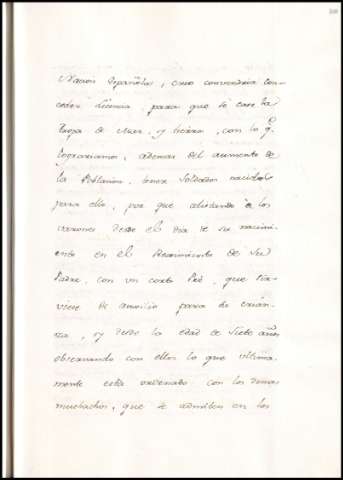 Nacion Española, creo convendria con-
ceder licencia para que se case la
Tropa de Mar, y tierra, con lo q.
lograriamos, ademas del aumento de
la Poblacion, tener Soldados nacidos
para ello, por que alistando à los
varones desde el dia de su nacimi-
ento en el Rexvimiento de su
Padre, con un corto Pré, que sir-
viese de auxilio para su crian-
za, y desde la edad de siete años
observando con ellos lo que ultima-
mente está ordenado con los demas
muchachos, que se admiten en los